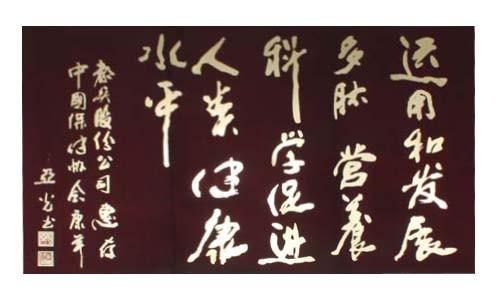 运用和发展
多肽营养
科学促进
人类健康
水平
股份公司惠存
中国保健协会
亚光书